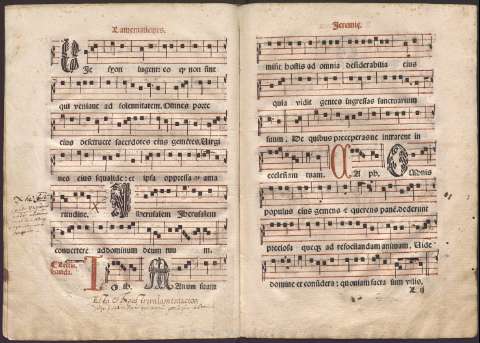 Lamentationes.
Ie syon lugent: eo q non sint
qui veniant ad solemnitatem. Omnes porte
eius destructe sacerdotes eius gemetes. Uirgi
nes eius squalide: et ipsa oppressa amari
tudine. Jherusalem Jherusalem
convertere ad dominum deum tuum.
Ioth. Manum suam
Jeremie.
misit hostis ad omnia desiderabilia eius
quia vidit gentes ingressas sanctuarium
suum. De quibus preceperas ne intrarent in
ecclesiam tuam. Caph. Omnis
populus eius gemens et querens panem. dederunt
preciosa queque ad refocilandam animam. Uide
domine et considera: quoniam facta sum vilis.